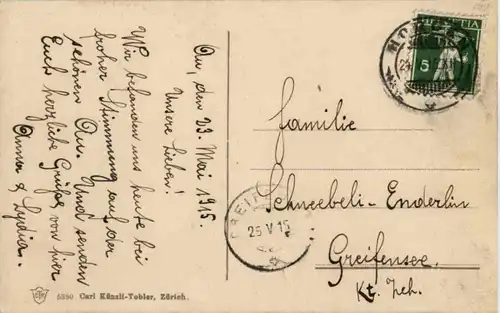 Au, den 23. Mai 1915.
Unsere Lieben!
Wir befanden uns heute bei
froher Stimmung auf der
schönen Au. Und senden
Euch herzliche Grüße von hier
Anna & Lydia.
HELVETIA
5
Familie
Schneebeli-Enderlin
Greifensee.
Kt. Zch.
25 V 15
5350 Carl Künzli-Tobler, Zürich.